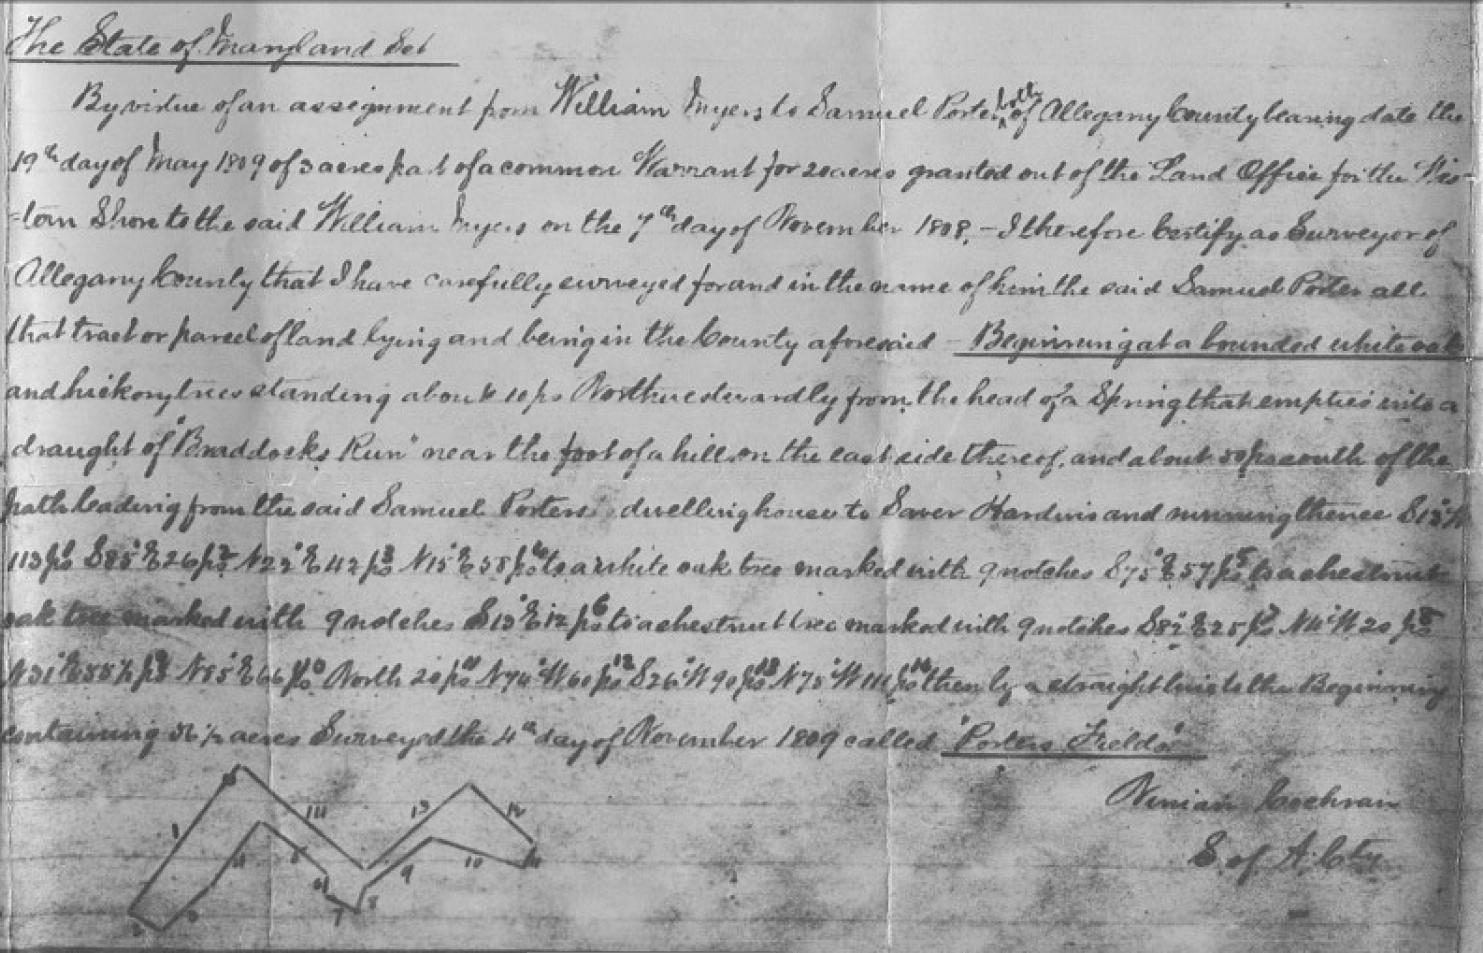 The State of Maryland Sct
By virtue of an assignment from William Myers to Samuel Porter both of Allegany County bearing date the
19th day of May 1809 of 3 acres part of a common Warrant for 20 acres granted out of the Land Office for the Wes-
-tern Shore to the said William Myers on the 7th day of November 1808, - I therefore Certify as Surveyor of
Allegany County that I have carefully surveyed for and in the name of him the said Samuel Porter all
that tract or parcel of land lying and being in the County aforesaid - Beginning at a bounded white oak
and hickory trees standing about 10 ps Northwestwardly from the head of a Spring that empties into a
draught of "Braddocks Run" near the foot of a hill on the east side thereof, and about 50 ps south of the
path leading from the said Samuel Porters dwelling house to Hardins and running thence
113 ps S85°E 26 ps N22°E 42 ps N15°E 58 ps to a white oak tree marked with 9 notches S75°E 57 ps to a chestnut
oak tree marked with 9 notches S13°E 12 ps 6 to a chestnut tree marked with 9 notches S82°E 25 ps W 20 ps
N31°E ps N85°E 66 ps 10 North 20 ps 11 W 60 ps 12 S26°W 90 ps 13 N75°W ps 14 then by a straight line to the Beginning
containing acres Surveyed the 4th day of November 1809 called "Porters Fields"
Ninian Cochran
S. of A. Cty
1 14 13 12
4 5 9 10
3 8
2 7